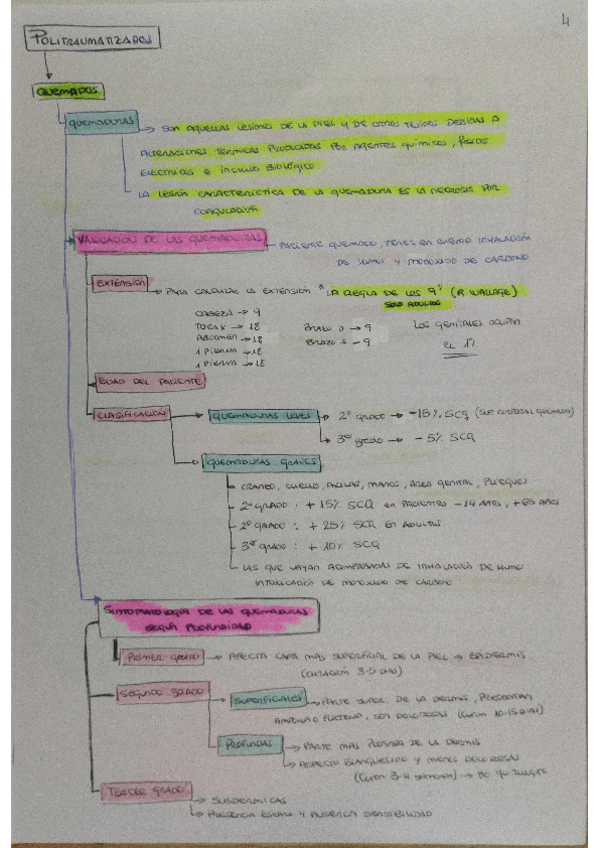 4
POLITRAUMATIZADOS
QUEMADOS
QUEMADURAS → SON AQUELLAS LESIONES DE LA PIEL Y DE OTROS TEJIDOS DEBIDAS A
ALTERACIONES TÉRMICAS PRODUCIDAS POR AGENTES QUÍMICOS, FÍSICOS
ELÉCTRICOS E INCLUSO BIOLÓGICO
LA LESIÓN CARACTERÍSTICA DE LA QUEMADURA ES LA NECROSIS POR
COAGULACIÓN
VALORACIÓN DE LAS QUEMADURAS - PACIENTE QUEMADO, TENER EN CUENTA INHALACIÓN
DE HUMO Y MONÓXIDO DE CARBONO
EXTENSIÓN → PARA CALCULAR LA EXTENSION "LA REGLA DE LOS 9" (R. WALLACE)
SOLO ADULTOS
CABEZA → 9
TORAX → 18 BRAZO D → 9 LOS GENITALES OCUPAN
ABDOMEN → 18 BRAZO I → 9 EL 1%
1 PIERNA → 18
1 PIERNA → 18
EDAD DEL PACIENTE
CLASIFICACIÓN → QUEMADURAS LEVES → 2º GRADO → -15% SCQ (SUP. CORPORAL QUEMADA)
→ 3er GRADO → -5% SCQ
QUEMADURAS GRAVES
CRANEO, CUELLO, AXILAS, MANOS, AREA GENITAL, PLIEGUES
2º GRADO: +15% SCQ EN PACIENTES -14 AÑOS, +65 AÑOS
2º GRADO: +25% SCQ EN ADULTOS
3er GRADO: +10% SCQ
LAS QUE VAYAN ACOMPAÑADAS DE INHALACIÓN DE HUMO
INTOXICACIÓN DE MONOXIDO DE CARBONO
SINTOMATOLOGIA DE LAS QUEMADURAS
SEGÚN PROFUNDIDAD
PRIMER GRADO → AFECTA CAPA MAS SUPERFICIAL DE LA PIEL → EPIDERMIS
(CURACIÓN 3-5 DIAS)
SEGUNDO GRADO SUPERFICIALES → PARTE SUPER. DE LA DERMIS, PRESENTAN
AMPOLLA O FLICTENA, SON DOLOROSAS (CURAN 10-15 DIAS)
PROFUNDAS → PARTE MAS PROFUNDA DE LA DERMIS
→ ASPECTO BLANQUECINO Y MENOS DOLOROSAS
(CURAN 3-4 SEMANAS) →
TERCER GRADO → SUBDERMICAS
→ PRESENCIA ESCARA Y AUSENCIA SENSIBILIDAD